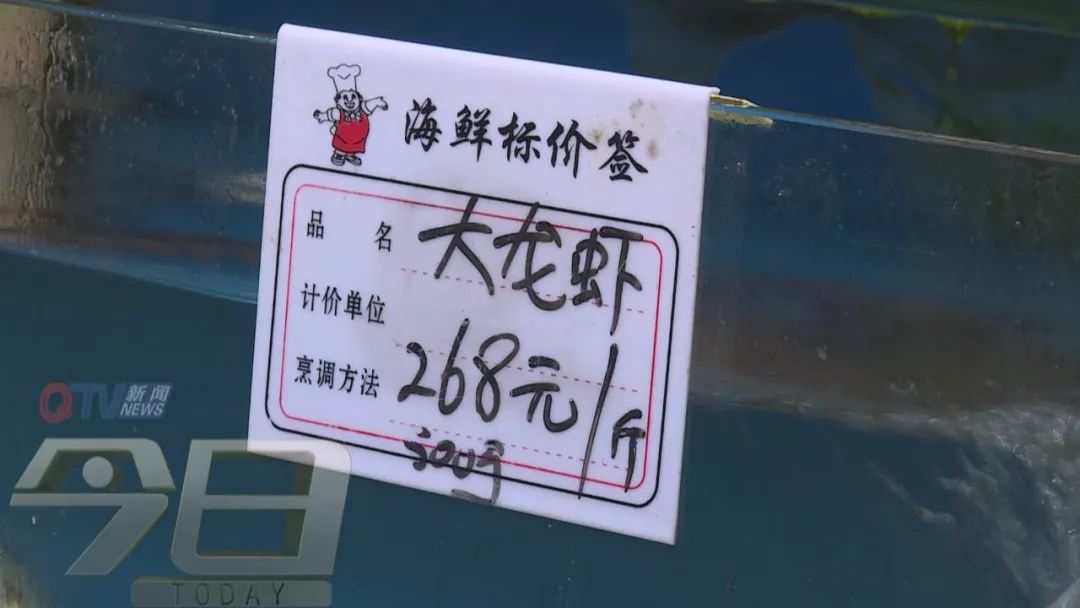 海鲜标价签
品 名 大龙虾
计价单位
烹调方法 268元/斤
500g
QTV 新闻
NEWS
今日
TODAY